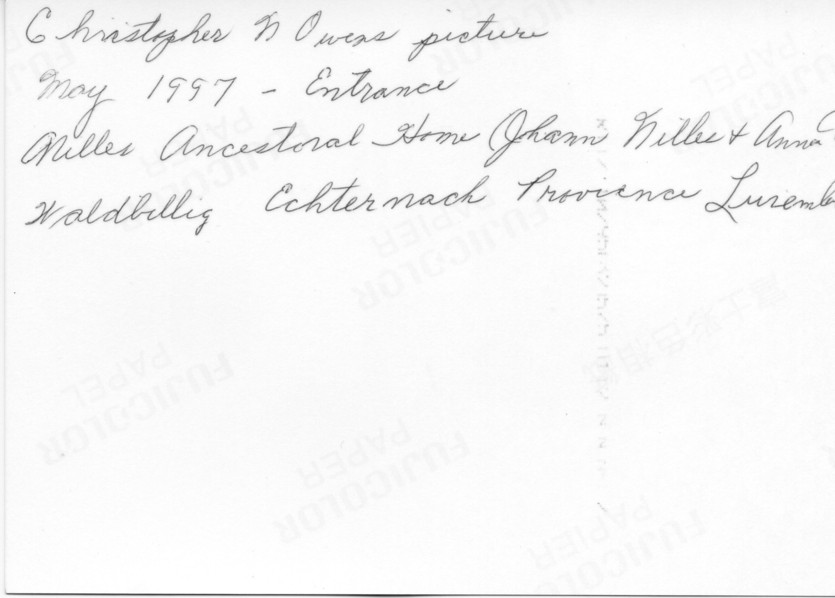 Christopher N Owens picture
May 1997 - Entrance
Nilles Ancestoral Home (Johann Nilles + Anna
Waldbillig Echternach Provience Luxemb
FUJICOLOR
PAPEL
FUJICOLOR
PAPIER
FUJICOLOR
PAPER
FUJICOLOR
PAPIER